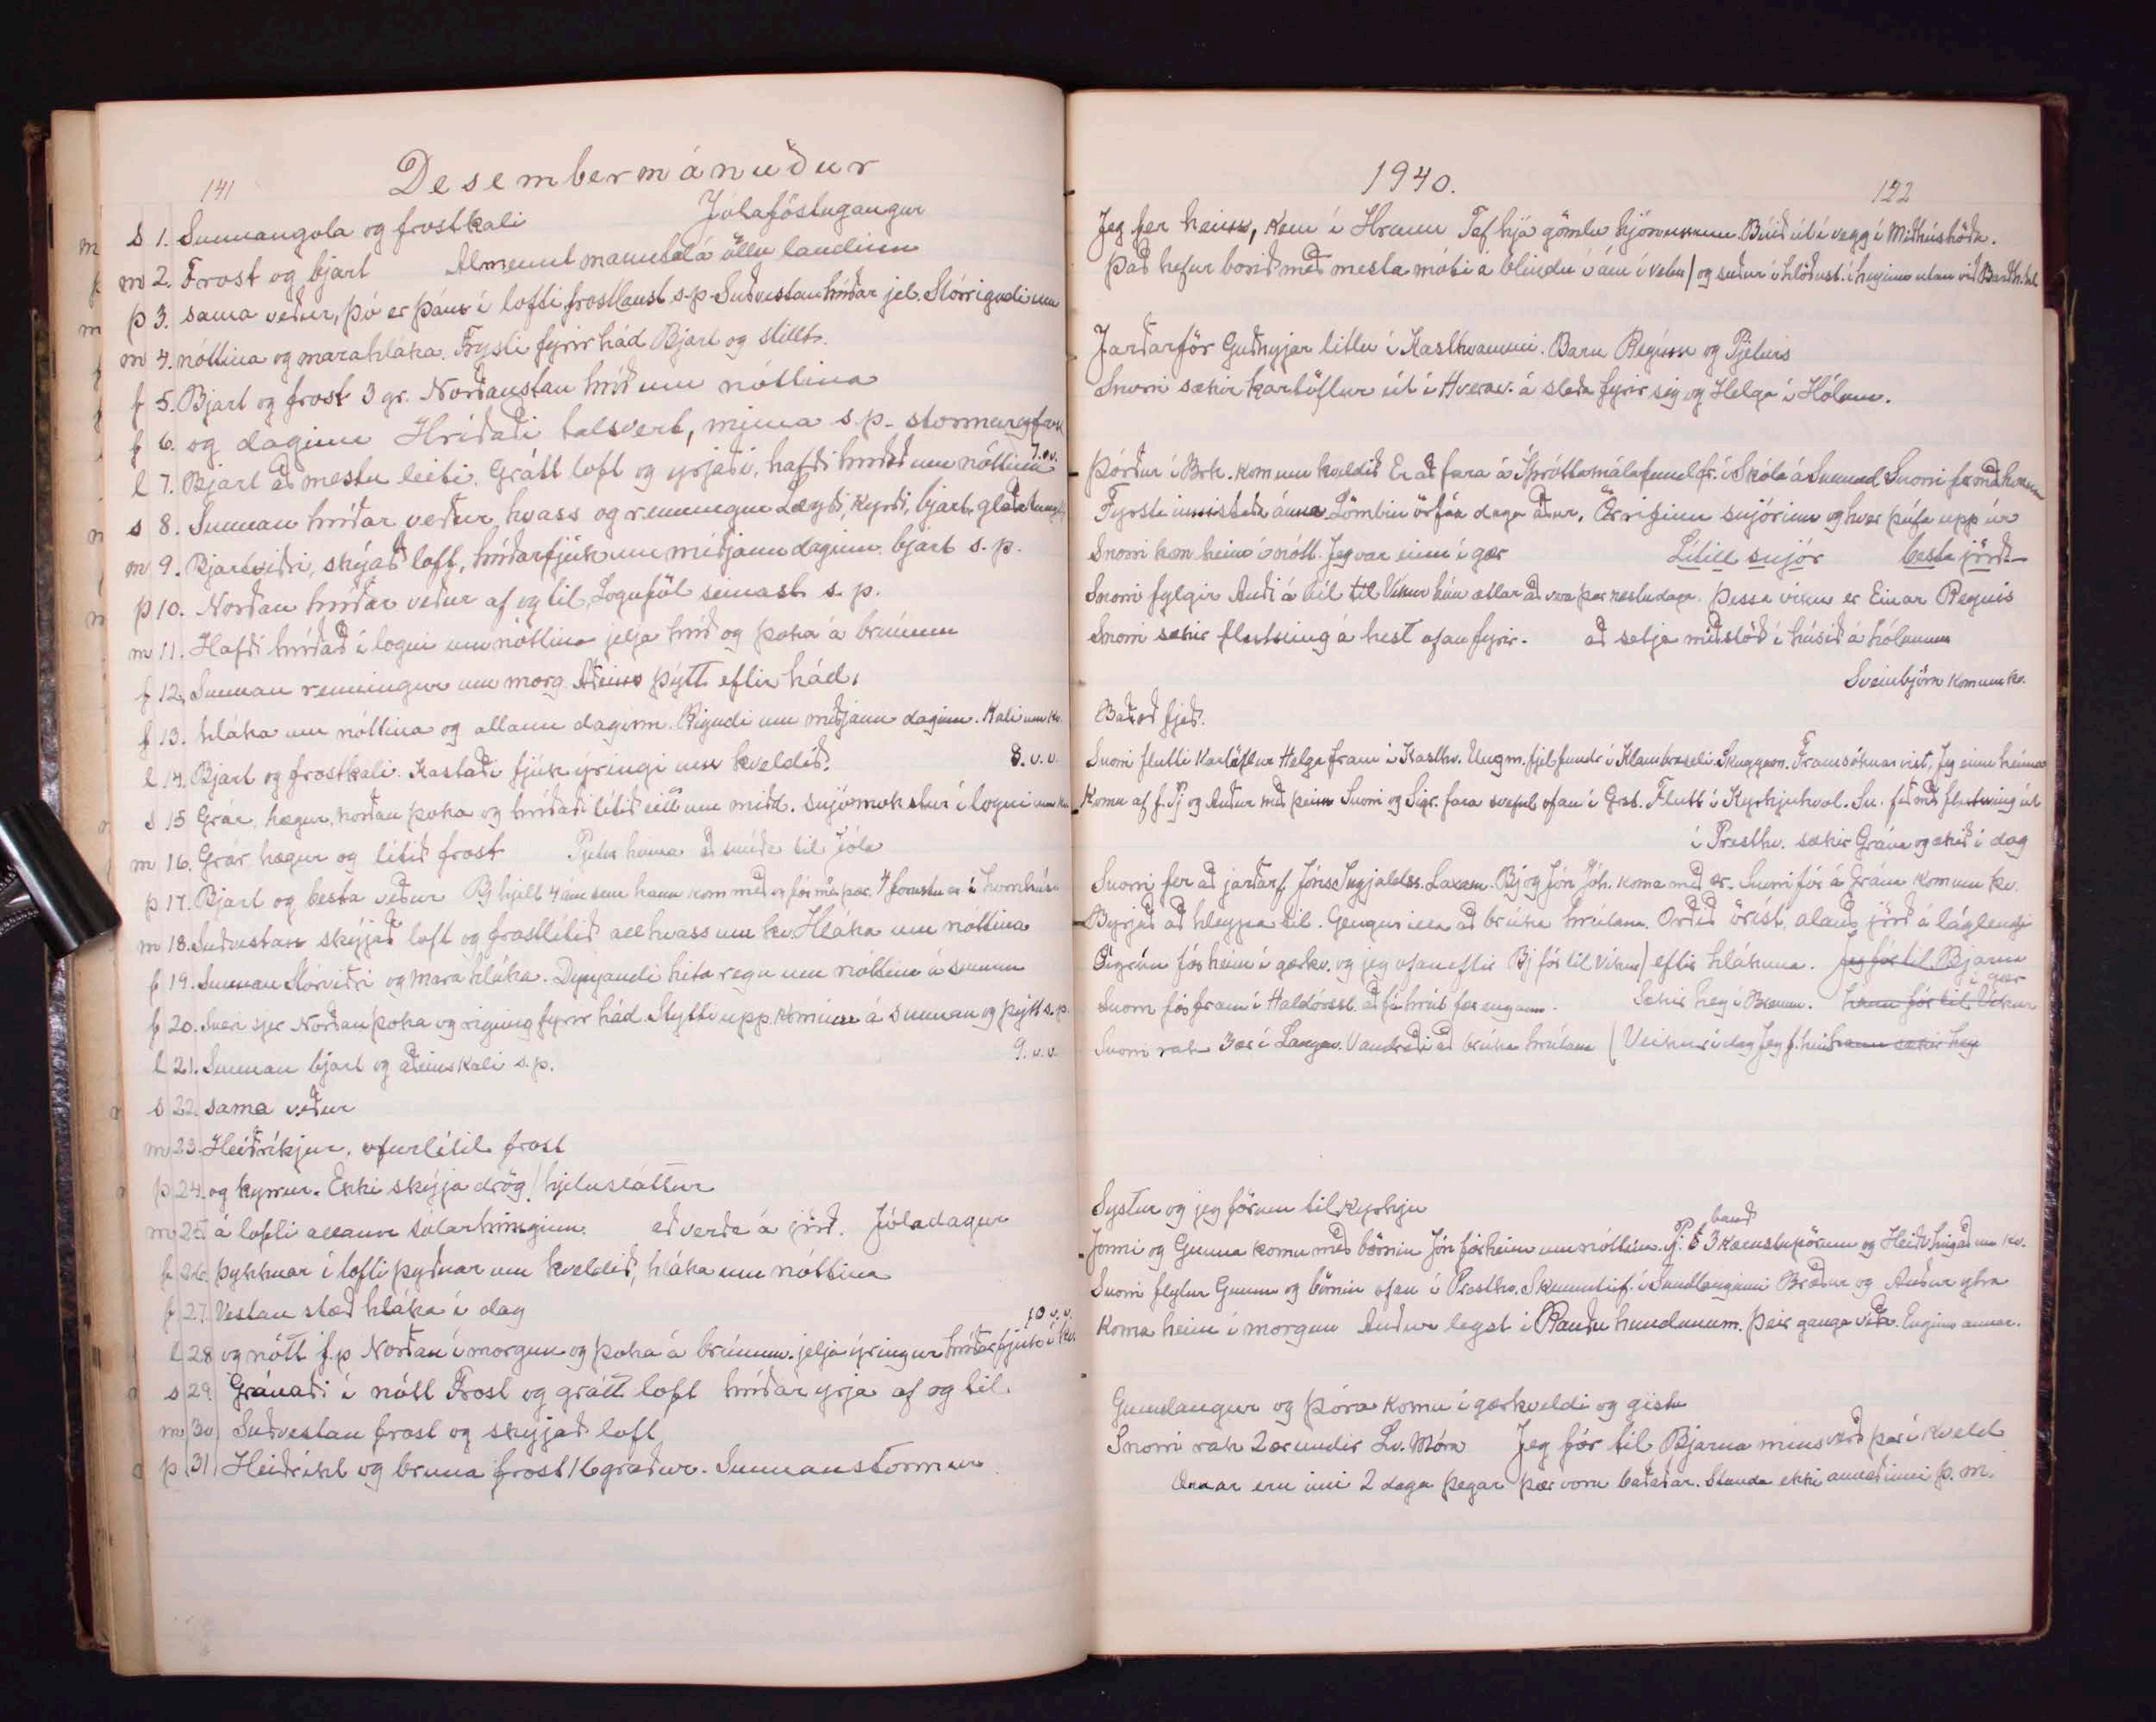 141
Desembermánuður
s 1. Sunnangola og frostkali Jólaföstugangur
m 2. Frost og bjart Almennt manntal á öllu landinu
þ 3. sama veður, þó er þáns í lofti, frostlaust s.p. Suðvestan hríðar jel. Stórrigndi um
m 4. nóttina og marahláka. Frysti fyrir hád Bjart og stillt.
f 5. Bjart og frost 3 gr. Norðaustan hríð um nóttina
f 6. og daginn Hríðaði talsvert, minna s.p. stormur og
7.v.v.
l 7. Bjart að mestu leiti. Grátt loft og yrjaði, hafði hríðað um nóttina
s 8. Sunnan hríðar veður, hvass og renningur Lægði, kyrði, bjart, glaða
m 9. Bjartviðri, skýað loft, hríðarfjúk um miðjann daginn. bjart s.p.
þ 10. Norðan hríðar veður af og til, Lognföl seinast s.p.
m 11. Hafði hríðað í logni um nóttina jelja hríð og þoka á brúnum
f 12. Sunnan renningur um morg. Aðeins þýtt eftir hád.
f 13. hláka um nóttina og allann daginn. Rigndi um miðjann daginn. Kali um kv.
l 14. Bjart og frostkali. Kastaði fjúk ýringi um kveldið. 8.v.v.
s 15 Grár, hægur, norðan þoka og hríðaði lítið eitt um midd. snjómokstur í logni um kv.
m 16. Grár hægur og lítið frost Pjetur heima að smíða til Jóla
þ 17. Bjart og besta veður Bj hjelt 4 ám sem hann kom með og fór með þær. 4 forustu er í
m 18. Suðvestan skýjað loft og frostlítið allhvass um kv. Hláka um nóttina
f 19. Sunnan Stórviðri og mara hláka. Dynjandi hita regn um nóttina á sunnan
f 20. Svei sjer Norðan þoka og rigning fyrir hád. Stytti upp. Kominn á sunnan og þýtt s.p.
l 21. Sunnan bjart og aðeins kali s.p. 9.v.v.
s 22. sama veður
m 23. Heiðríkjur, ofurlítil frost
þ 24. og kyrrur. Ekki skýja drög / hjelusláttur
m 25. á lofti allann sólarhringinn. að verða á jörð. Jóladagur
f 26. Þykknar í lofti þyðnar um kveldið, hláka um nóttina
f 27. Vestan stæð hláka í dag
10 v.v.
l 28 og nótt f.p Norðan í morgun og þoka á brúnum. jelja ýringur hríðarfjúk í kv.
s 29. Gránaði í nótt Frost og grátt loft hríðar yrja af og til.
m 30 Suðvestan frost og skyjað loft
þ 31 Heiðríkt og bruna frost 16 gráður. Sunnanstormur
1940.
122
Jeg fer heim, kem í Hraun Taf hjá gömlu hjónunum. Búið út í vegg í Miðhúshöðu.
Það hefur borið með mesta móti á blindu í ám í vetur / og suður í hlöðust. í heyinu utan við
Jarðarför Guðnýjar litlu í Kasthvammi. Barn Regínu og Pjeturs
Snorri sækir kartöflur út í Hverav. á sleða fyrir sig og Helga í Hólum.
Þórður í Brh. kom um kveldið Er að fara á Íþróttamálafund fr. í Skóla á Sunnud Snorri fer með honum
Fyrsta innistaða ánna Lömbin örfáa daga áður. Ör rifinn snjórinn og hver þúfa upp úr
Snorri kom heim í nótt. Jeg var einn í gær Lítill snjór besta jörð
Snorri fylgir Auði á bíl til Víkur hún ætlar að vera þar næstu daga. Þessa viku er Einar Regins
Snorri sækir flutning á hest ofan fyrir. að setja miðstöð í húsið á hólnum
Sveinbjörn kom um kv.
Baðað fjeð.
Snorri flutti kartöflur Helga fram í Kasthv. Ungm.fjel fundr í Klambraseli. Skuggam. Framsóknarvist, Jeg einn heima
Komu af f. Pj og Auður með þeim Snorri og Sigr. fara ofan í Grst. Flutt í Kyrkjuhvol. Sn. fer með flutning út
í Presthv. sækir Grána og ekið í dag
Snorri fer að jarðarf. Jóns Ingjaldss. Laxam. Bj og Jón Jóh. koma með ær. Snorri fór á Grána kom um kv.
Byrjað að hleypa til. Gengur illa að brúka hrútana. Orðið örist, alauð jörð á láglendi
Sigrún fór heim í gærkv. og jeg ofan eftir Bj fór til Víkur / eftir hlákuna. Jeg fór til Bjarna
í gær
Snorri fór fram í Haldórsst. að fá hrút fær engann. Sækir hey í Braun. hann fór til Víkur
Snorri rak 3 ær í Langav. Vandræði að brúka hrútana (Veikur í dag Jeg f. heim hann sækir hey
Systur og jeg fórum til Kyrkju
band
Jonni og Gunna komu með börnin Jón fór heim um nóttina. Pj. B 3 og Heið hingað um kv.
Snorri flytur Gunnu og börnin ofan í Presthv. Skemmtif. í Sundlauginni Bræður og Auður ytra
Koma heim í morgun Auður legst í Rauðu hundunum. Þeir ganga víða. Enginn annar.
Gunnlaugur og Þóra komu í gærkveldi og gistu
Snorri rak 2 ær undir Lv. Móra Jeg fór til Bjarna míns verð þar í kveld
Ærnar eru inni 2 daga þegar þær voru baðaðar. Standa ekki annað inni þ. m.